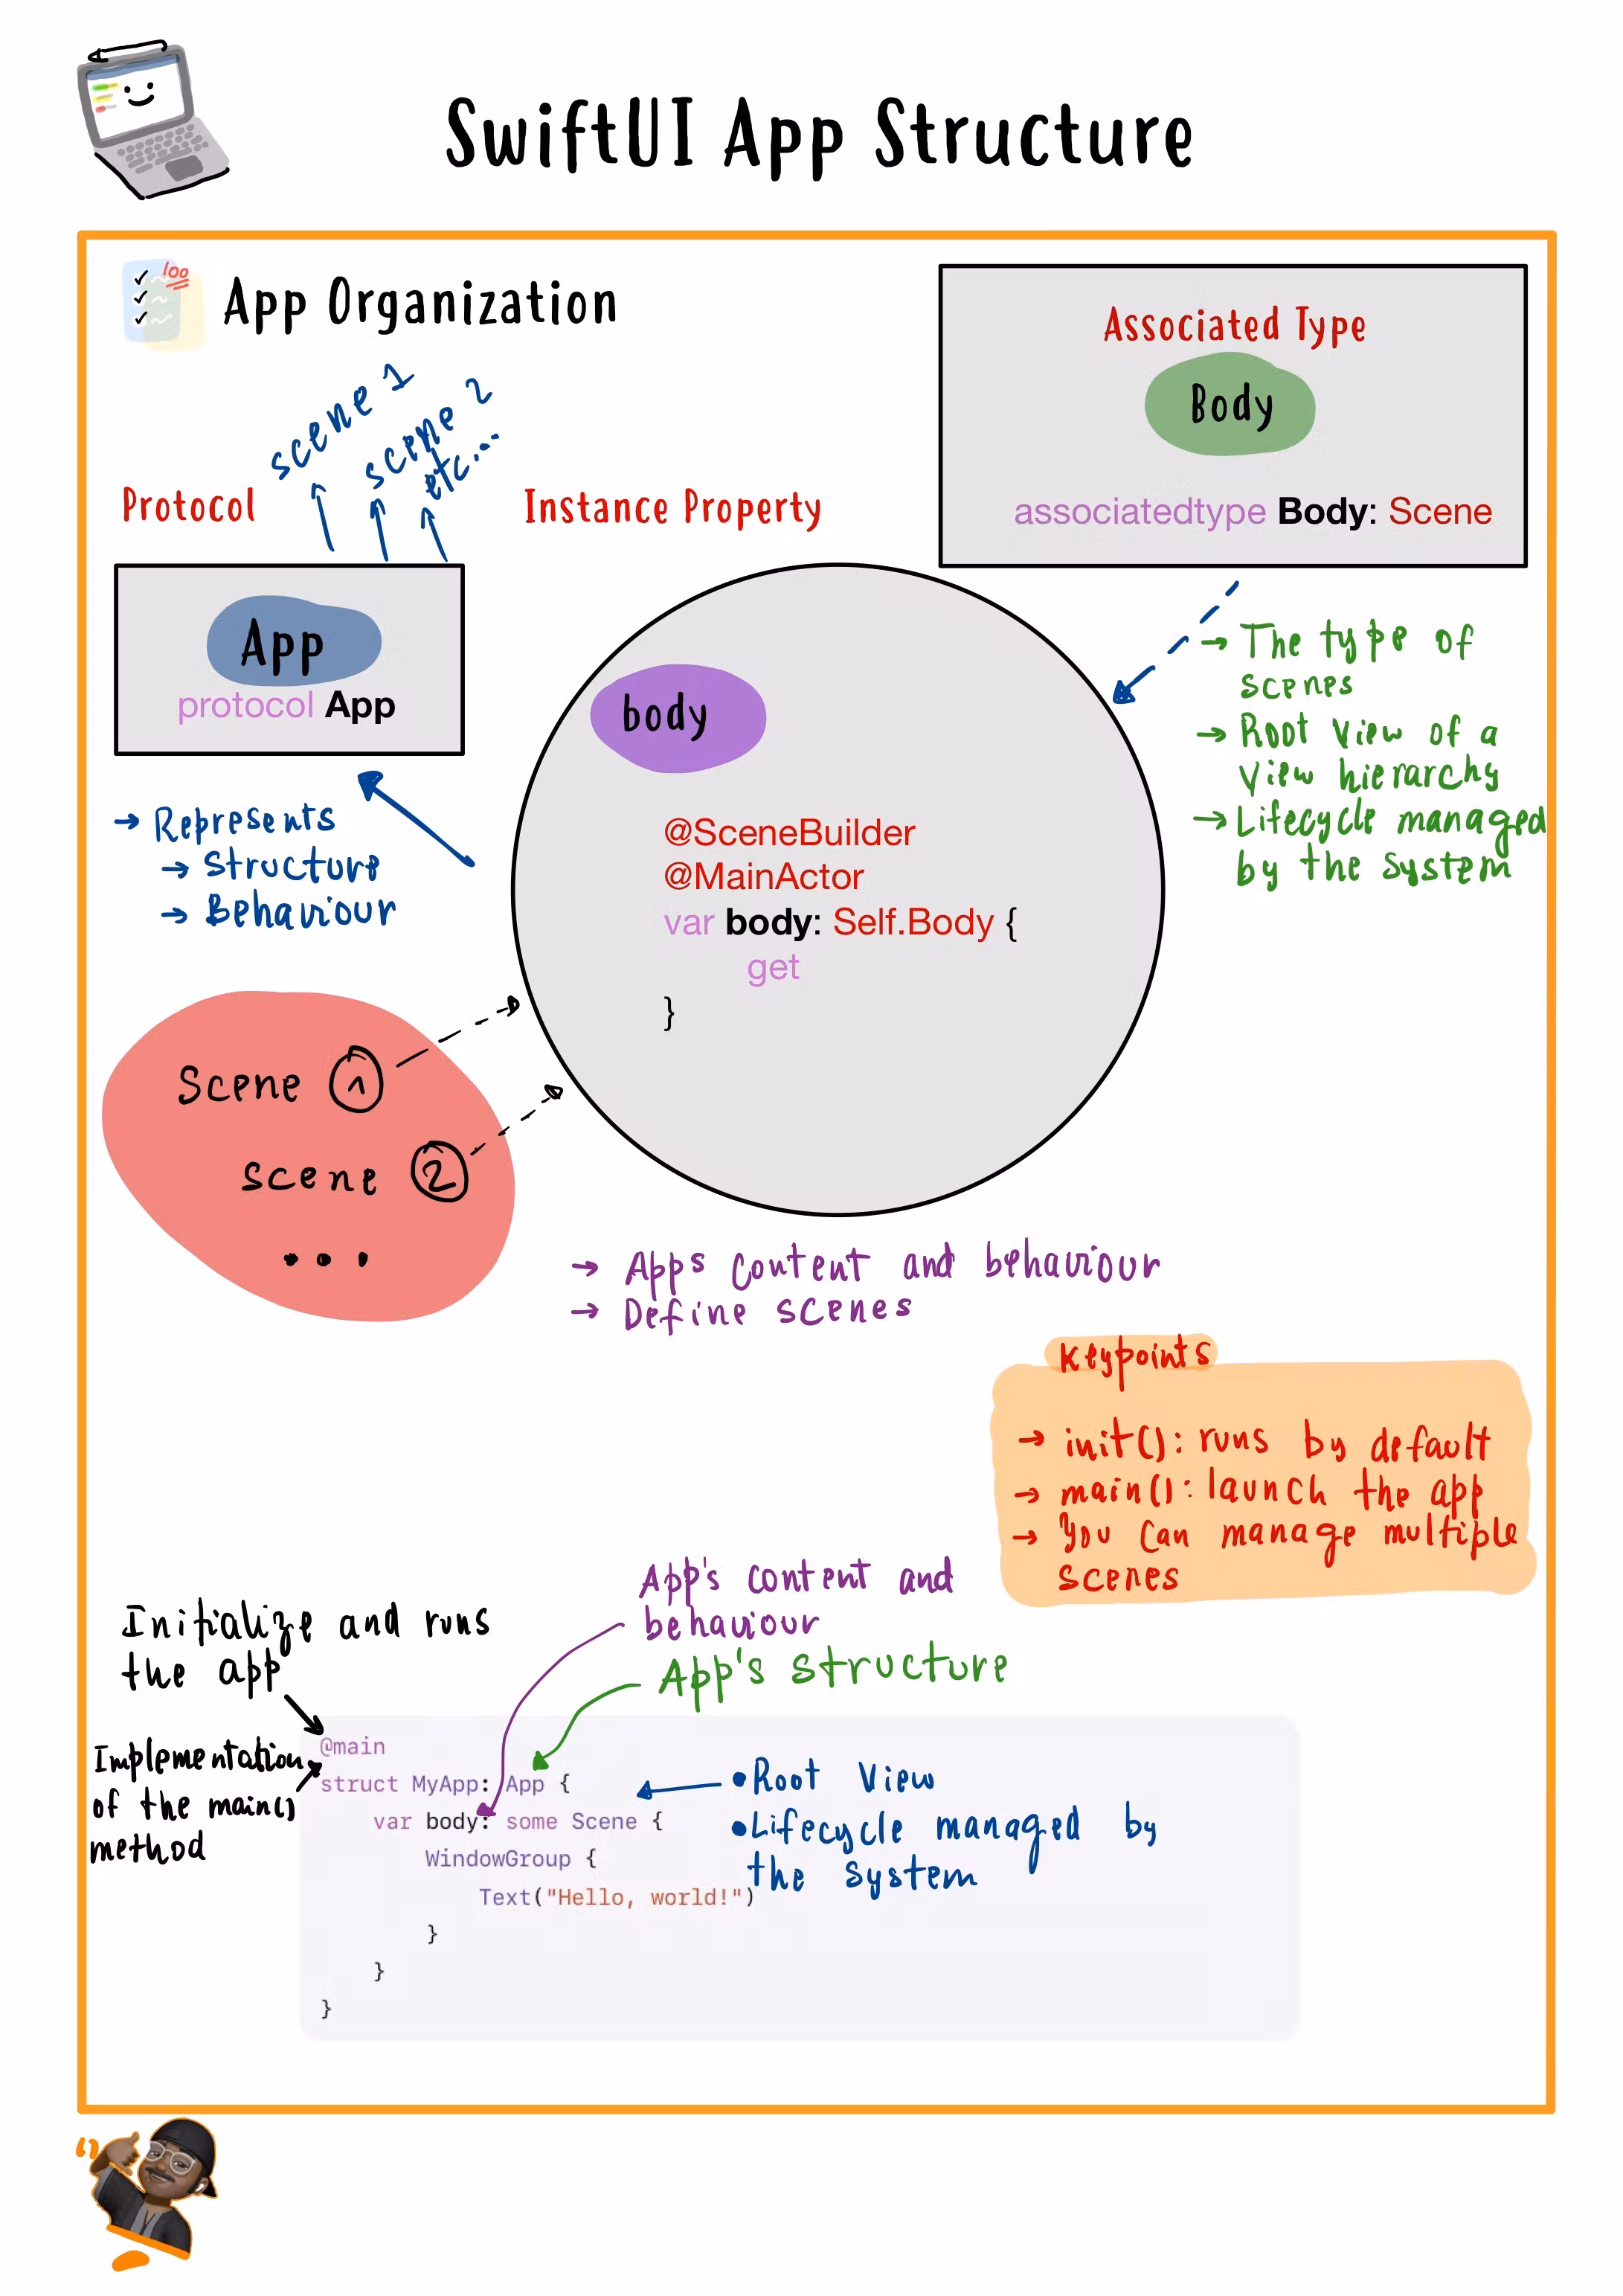 SwiftUI App Structure
100
App Organization
scene 1
scene 2
etc...
Protocol
App
protocol App
→ Represents
→ Structure
→ Behaviour
Instance Property
body
@SceneBuilder
@MainActor
var body: Self.Body {
get
}
Associated Type
Body
associatedtype Body: Scene
→ The type of
scenes
→ Root view of a
view hierarchy
→ Lifecycle managed
by the system
Scene 1
scene 2
...
→ Apps content and behaviour
→ Define scenes
Keypoints
→ init(): runs by default
→ main(): launch the app
→ You can manage multiple
scenes
Initialize and runs
the app
Implementation
of the main()
method
App's content and
behaviour
App's structure
@main
struct MyApp: App {
var body: some Scene {
WindowGroup {
Text("Hello, world!")
}
}
}
• Root View
• Lifecycle managed by
the system